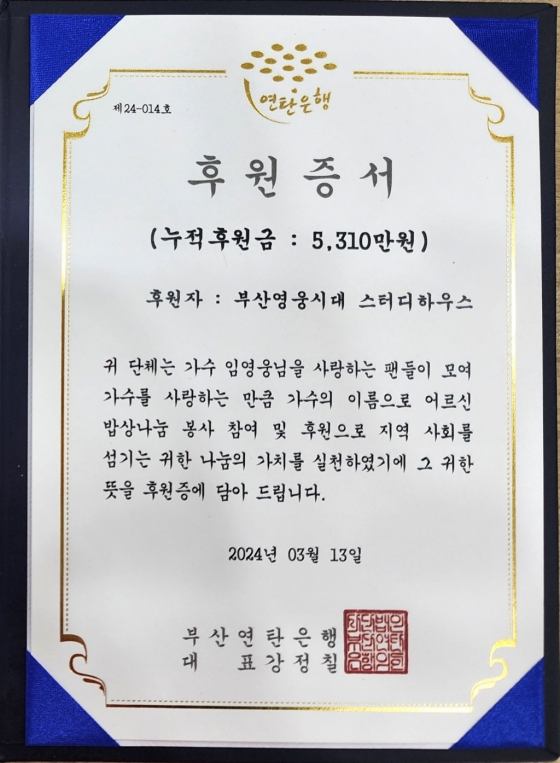 연탄은행
제24-014호
후원증서
(누적후원금 : 5,310만원)
후원자 : 부산영웅시대 스터디하우스
귀 단체는 가수 임영웅님을 사랑하는 팬들이 모여
가수를 사랑하는 만큼 가수의 이름으로 어르신
밥상나눔 봉사 참여 및 후원으로 지역 사회를
섬기는 귀한 나눔의 가치를 실천하였기에 그 귀한
뜻을 후원증에 담아 드립니다.
2024년 03월 13일
부산연탄은행
대 표강정칠